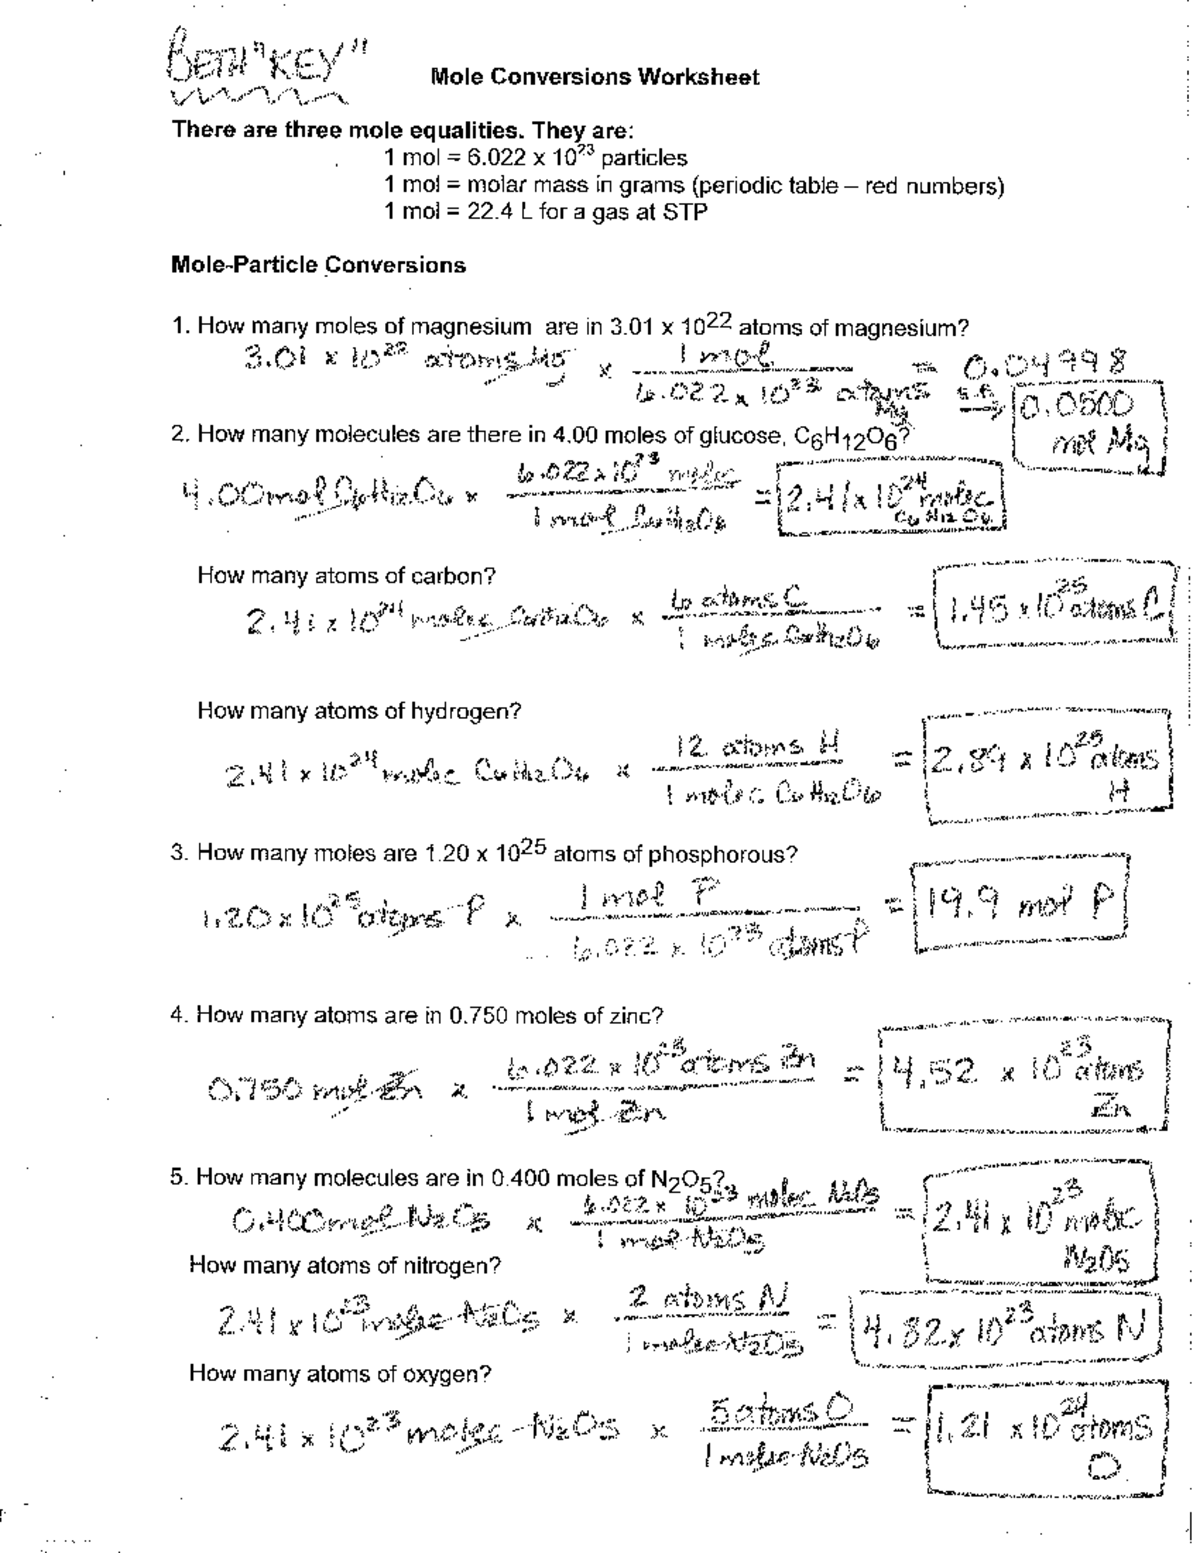 BETH "KEY"
Mole Conversions Worksheet
There are three mole equalities. They are:
1 mol = 6.022 x 10²³ particles
1 mol = molar mass in grams (periodic table – red numbers)
1 mol = 22.4 L for a gas at STP
Mole-Particle Conversions
1. How many moles of magnesium are in 3.01 x 10²² atoms of magnesium?
3.01 x 10²² atoms Mg x 1 mol / 6.022 x 10²³ atoms Mg = 0.04998
s.f. → 0.0500 mol Mg
2. How many molecules are there in 4.00 moles of glucose, C₆H₁₂O₆?
4.00 mol C₆H₁₂O₆ x 6.022 x 10²³ molec / 1 mol C₆H₁₂O₆ = 2.41 x 10²⁴ molec C₆H₁₂O₆
How many atoms of carbon?
2.41 x 10²⁴ molec C₆H₁₂O₆ x 6 atoms C / 1 molec C₆H₁₂O₆ = 1.45 x 10²⁵ atoms C
How many atoms of hydrogen?
2.41 x 10²⁴ molec C₆H₁₂O₆ x 12 atoms H / 1 molec C₆H₁₂O₆ = 2.89 x 10²⁵ atoms H
3. How many moles are 1.20 x 10²⁵ atoms of phosphorous?
1.20 x 10²⁵ atoms P x 1 mol P / 6.022 x 10²³ atoms P = 19.9 mol P
4. How many atoms are in 0.750 moles of zinc?
0.750 mol Zn x 6.022 x 10²³ atoms Zn / 1 mol Zn = 4.52 x 10²³ atoms Zn
5. How many molecules are in 0.400 moles of N₂O₅?
0.400 mol N₂O₅ x 6.022 x 10²³ molec N₂O₅ / 1 mol N₂O₅ = 2.41 x 10²³ molec N₂O₅
How many atoms of nitrogen?
2.41 x 10²³ molec N₂O₅ x 2 atoms N / 1 molec N₂O₅ = 4.82 x 10²³ atoms N
How many atoms of oxygen?
2.41 x 10²³ molec N₂O₅ x 5 atoms O / 1 molec N₂O₅ = 1.21 x 10²⁴ atoms O